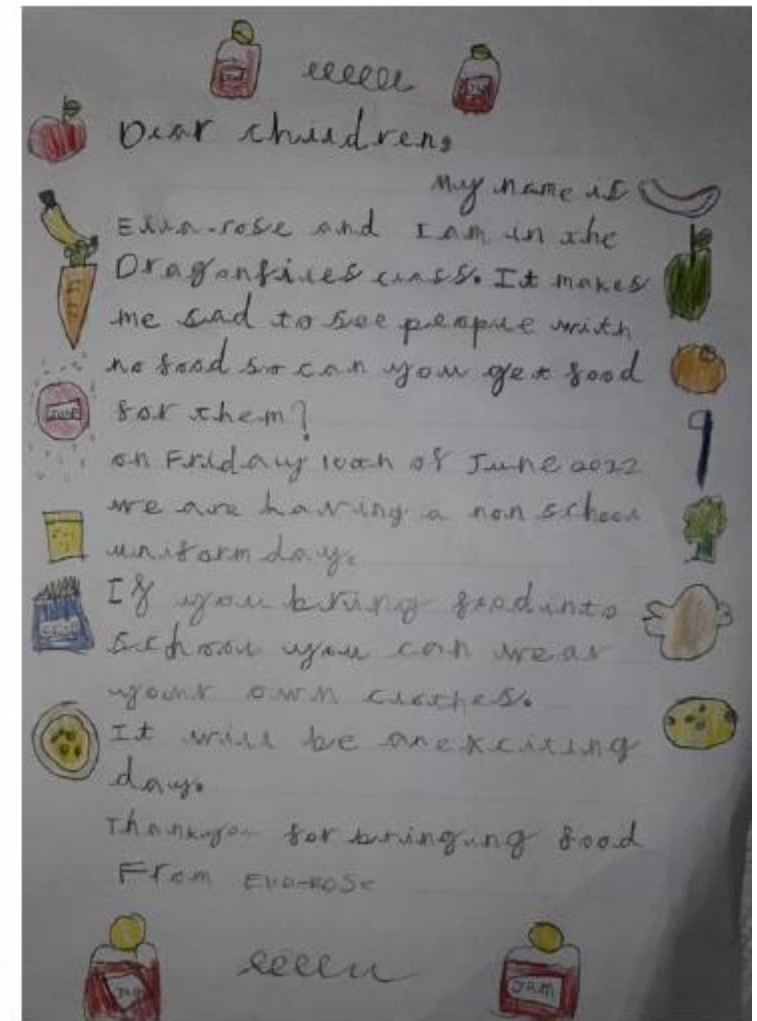 Jam
Jam
Dear children,
My name is
Ella-rose and I am in the
Dragonflies class. It makes
me sad to see people with
no food so can you get food
for them?
on Friday 10th of June 2022
we are having a non school
uniform day.
If you bring food into
school you can wear
your own clothes.
It will be an exciting
day.
Thankyou for bringing food
From Ella-Rose
Jam
Jam